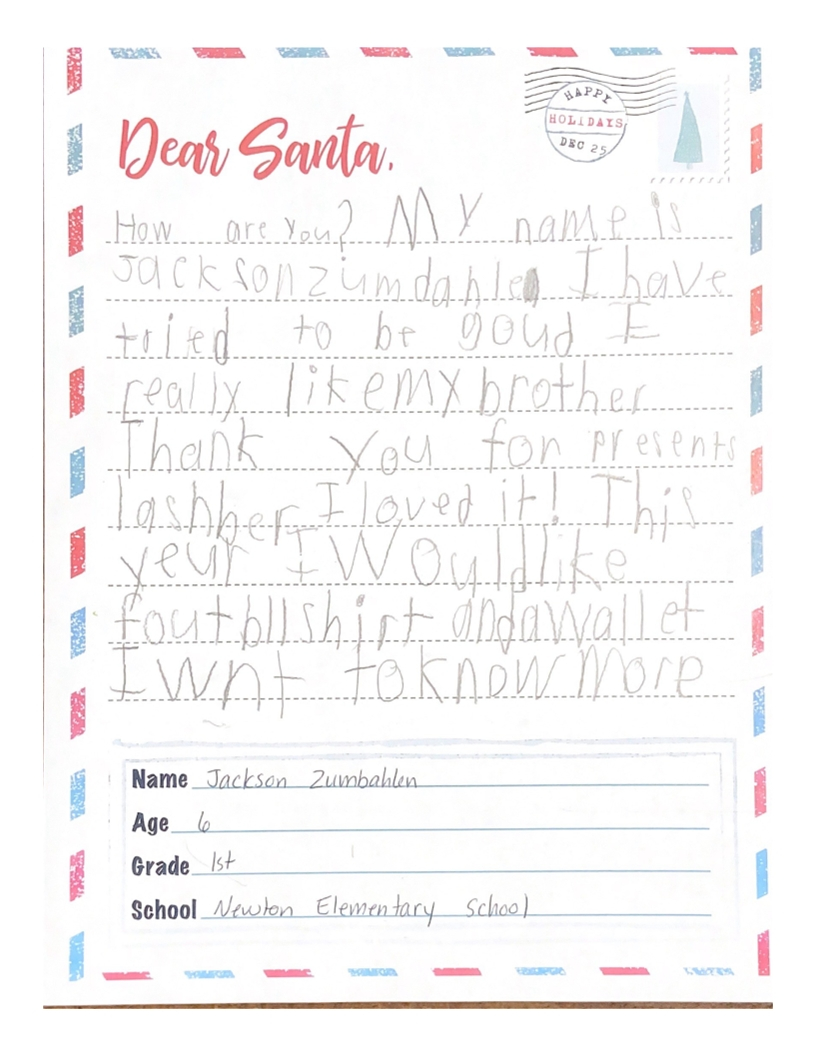 HAPPY
HOLIDAYS
DEC 25
Dear Santa,
How are you? My name is
Jackson zumdahlen I have
tried to be goud I
really like my brother
Thank you for presents
lashber I loved it! This
yeur I Would like
foutbll shirt and a wallet
I wnt to know more
Name Jackson Zumbahlen
Age 6
Grade 1st
School Newton Elementary School